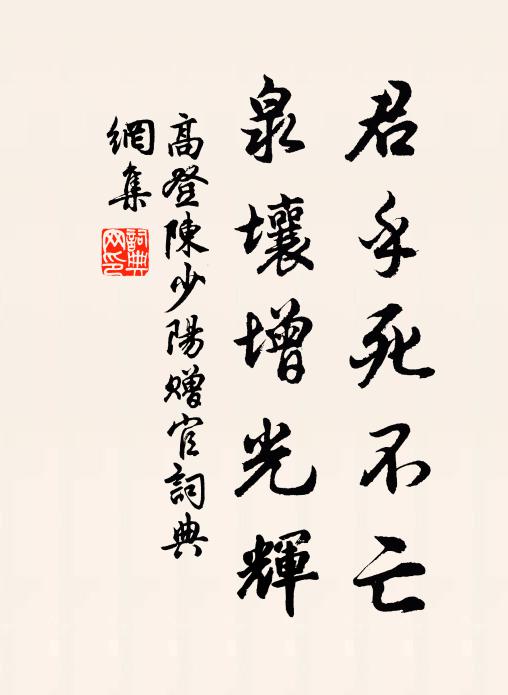 君乎死不亡
泉壤增光輝
高登陳少陽贈官詞典
網集
詞典網印